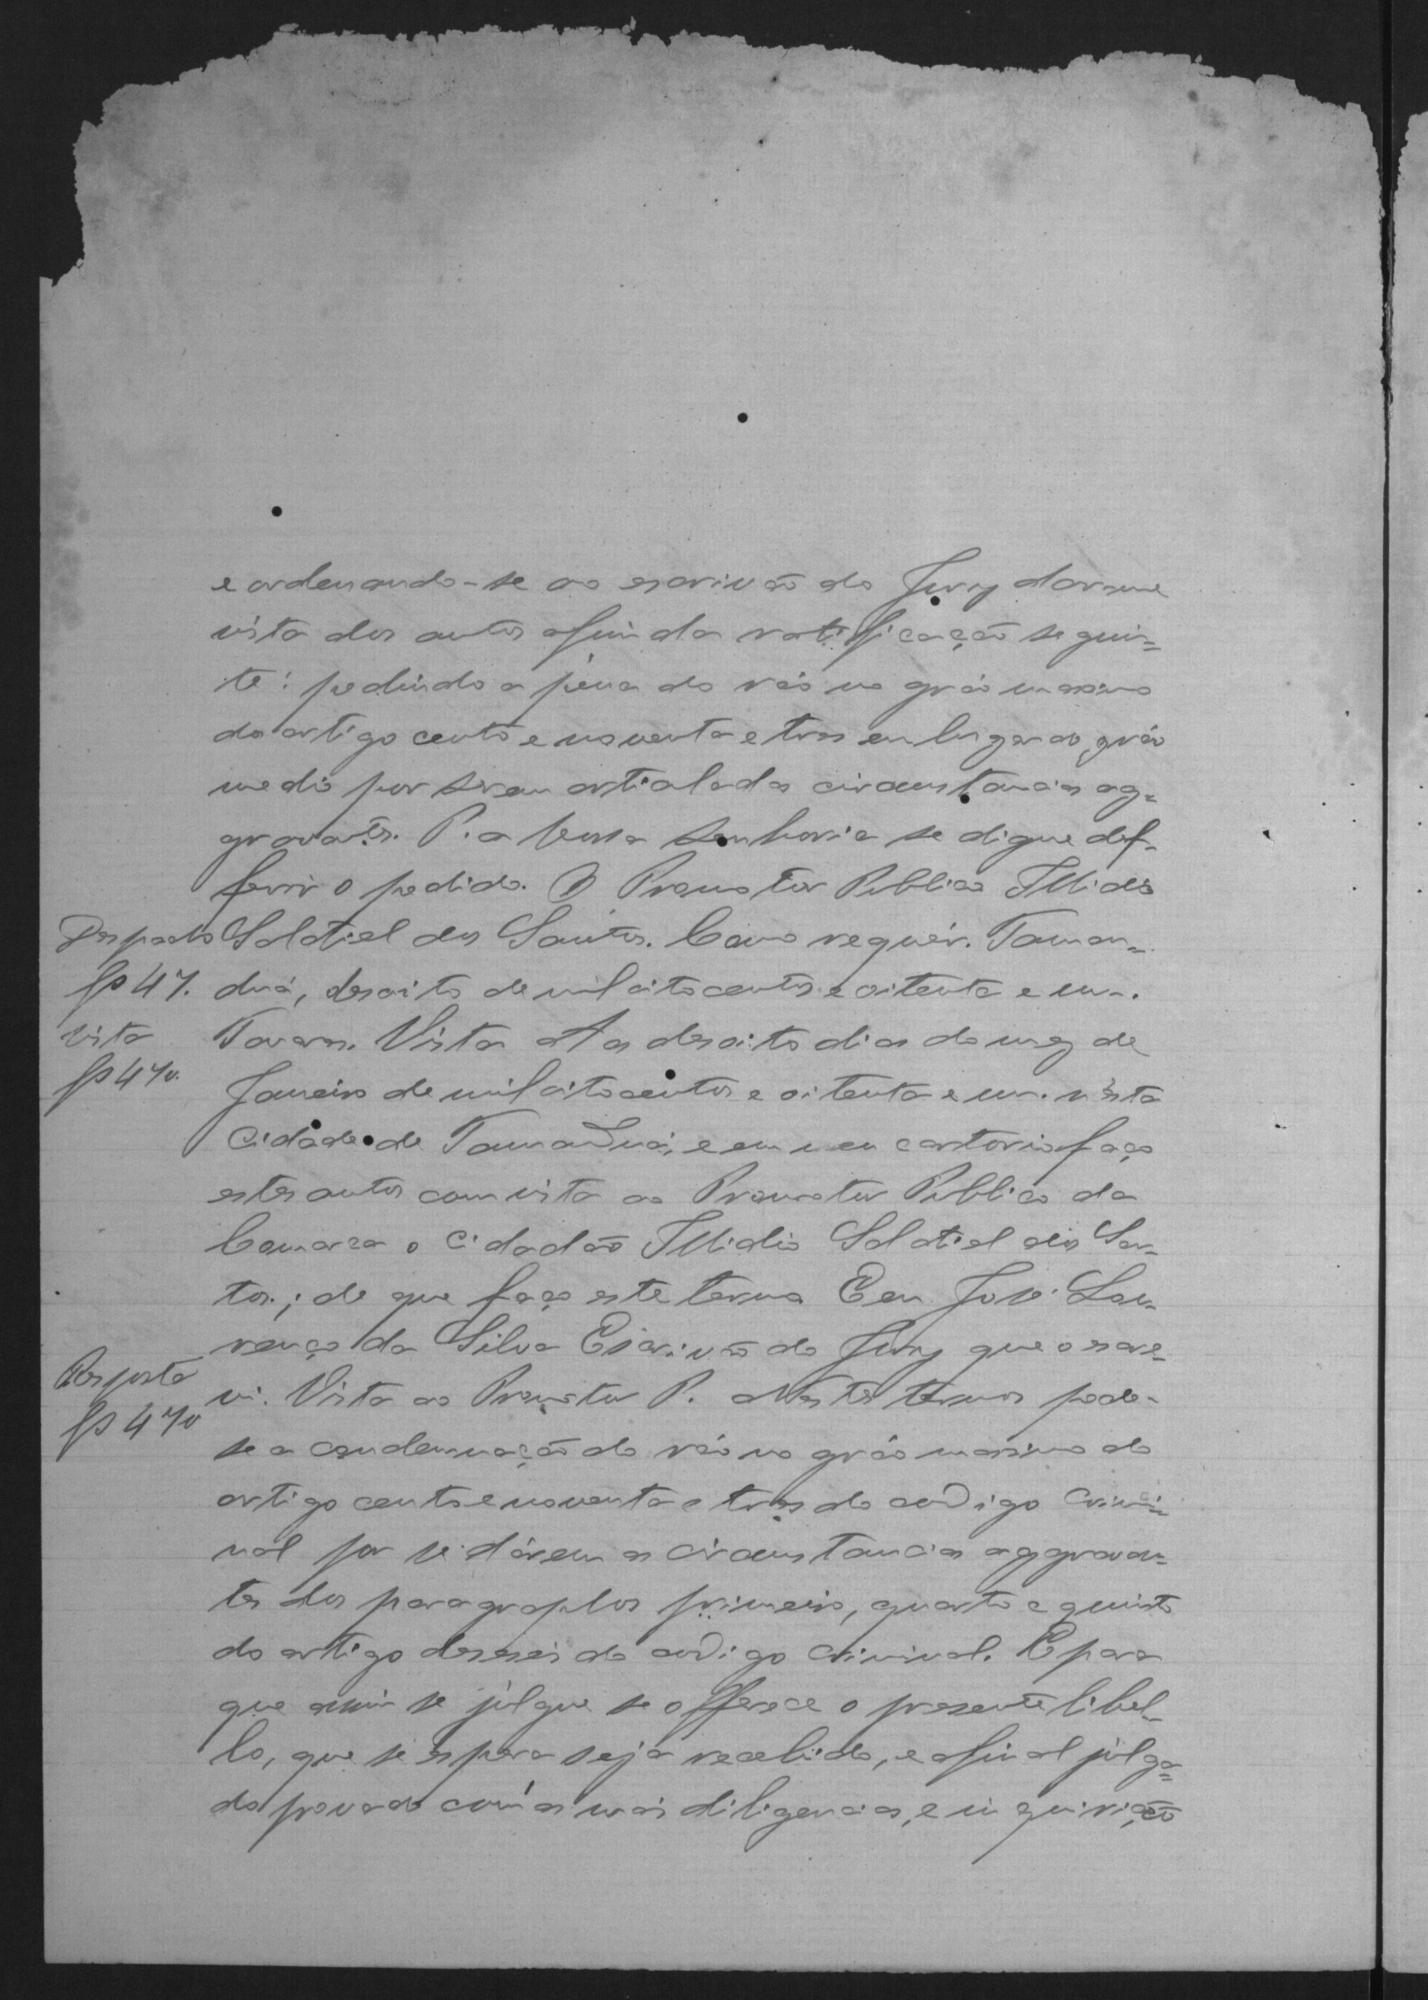 e ordenando-se ao escrivão do Jury dar-me
vista dos autos afim da ratificação seguin=
te: pedindo a pena do réo no gráo maximo
do artigo cento e noventa e tres em lugar ao gráo
medio por serem articuladas circumstancias ag=
gravates. P. a Vossa Senhoria se digne def-
ferir o pedido. O Promotor Publico Illidio
Despacho
fs 47.
Salatiel dos Santos. Como requér. Taman=
duá, desoito de mil oito centos e oitenta e um.
Vista
fs 47v.
Tavares. Vista Aos desoito dias do mez de
Janeiro de mil oito centos e oitenta e um. nesta
Cidade de Tamanduá, e em meu cartorio faço
estes autos com vista ao Promotor Publico da
Comarca o Cidadão Illidio Salatiel dos San-
tos; de que faço este termo Eu José Lou-
renço da Silva Escrivão do Jury que o escre-
Resposta
fs 47v
vi. Vista ao Promotor P. Nestes termos pede-
se a condemnação do réo no gráo maximo do
artigo cento e noventa e tres do codigo crimi=
nal por se dárem as circumstancias aggravan=
tes dos paragraphos primeiro, quarto e quinto
do artigo deseseis do codigo Criminal. E para
que assim se julgue se offerece o presente libel-
lo, que se espera seja recebido, e afinal julga=
do provado com as mais diligencias, e inquirição